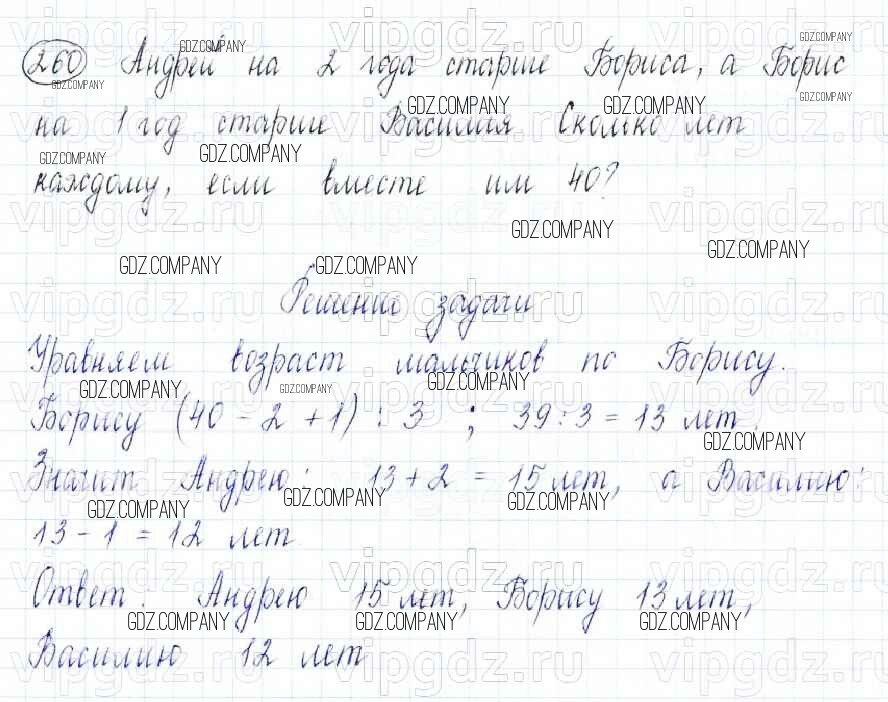 260 Андрей на 2 года старше Бориса, а Борис
на 1 год старше Василия Сколько лет
каждому, если вместе им 40?
Решение задачи
Уравняем возраст мальчиков по Борису.
Борису (40 - 2 + 1) : 3 ; 39 : 3 = 13 лет.
Значит Андрею: 13 + 2 = 15 лет, а Василию:
13 - 1 = 12 лет
Ответ: Андрею 15 лет, Борису 13 лет,
Василию 12 лет
GDZ.COMPANY
vipgdz.ru